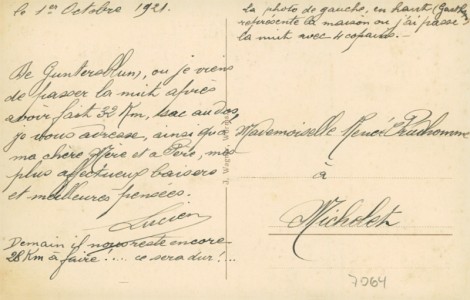 le 1er Octobre 1921.
De Guntersblum, ou je viens
de passer la nuit après
avoir fait 32 Km, sac au dos,
je vous adresse, ainsi qu'à
ma chère Mère et a Père, mes
plus affectueux baisers
et meilleures pensées.
Lucien
Demain il nous reste encore
28 Km à faire!.... ce sera dur!...
la photo de gauche, en haut
représente la maison ou j'ai passé
la nuit avec 4 copains.-
Mademoiselle Renée Prudhomme
à
Michelet
7064